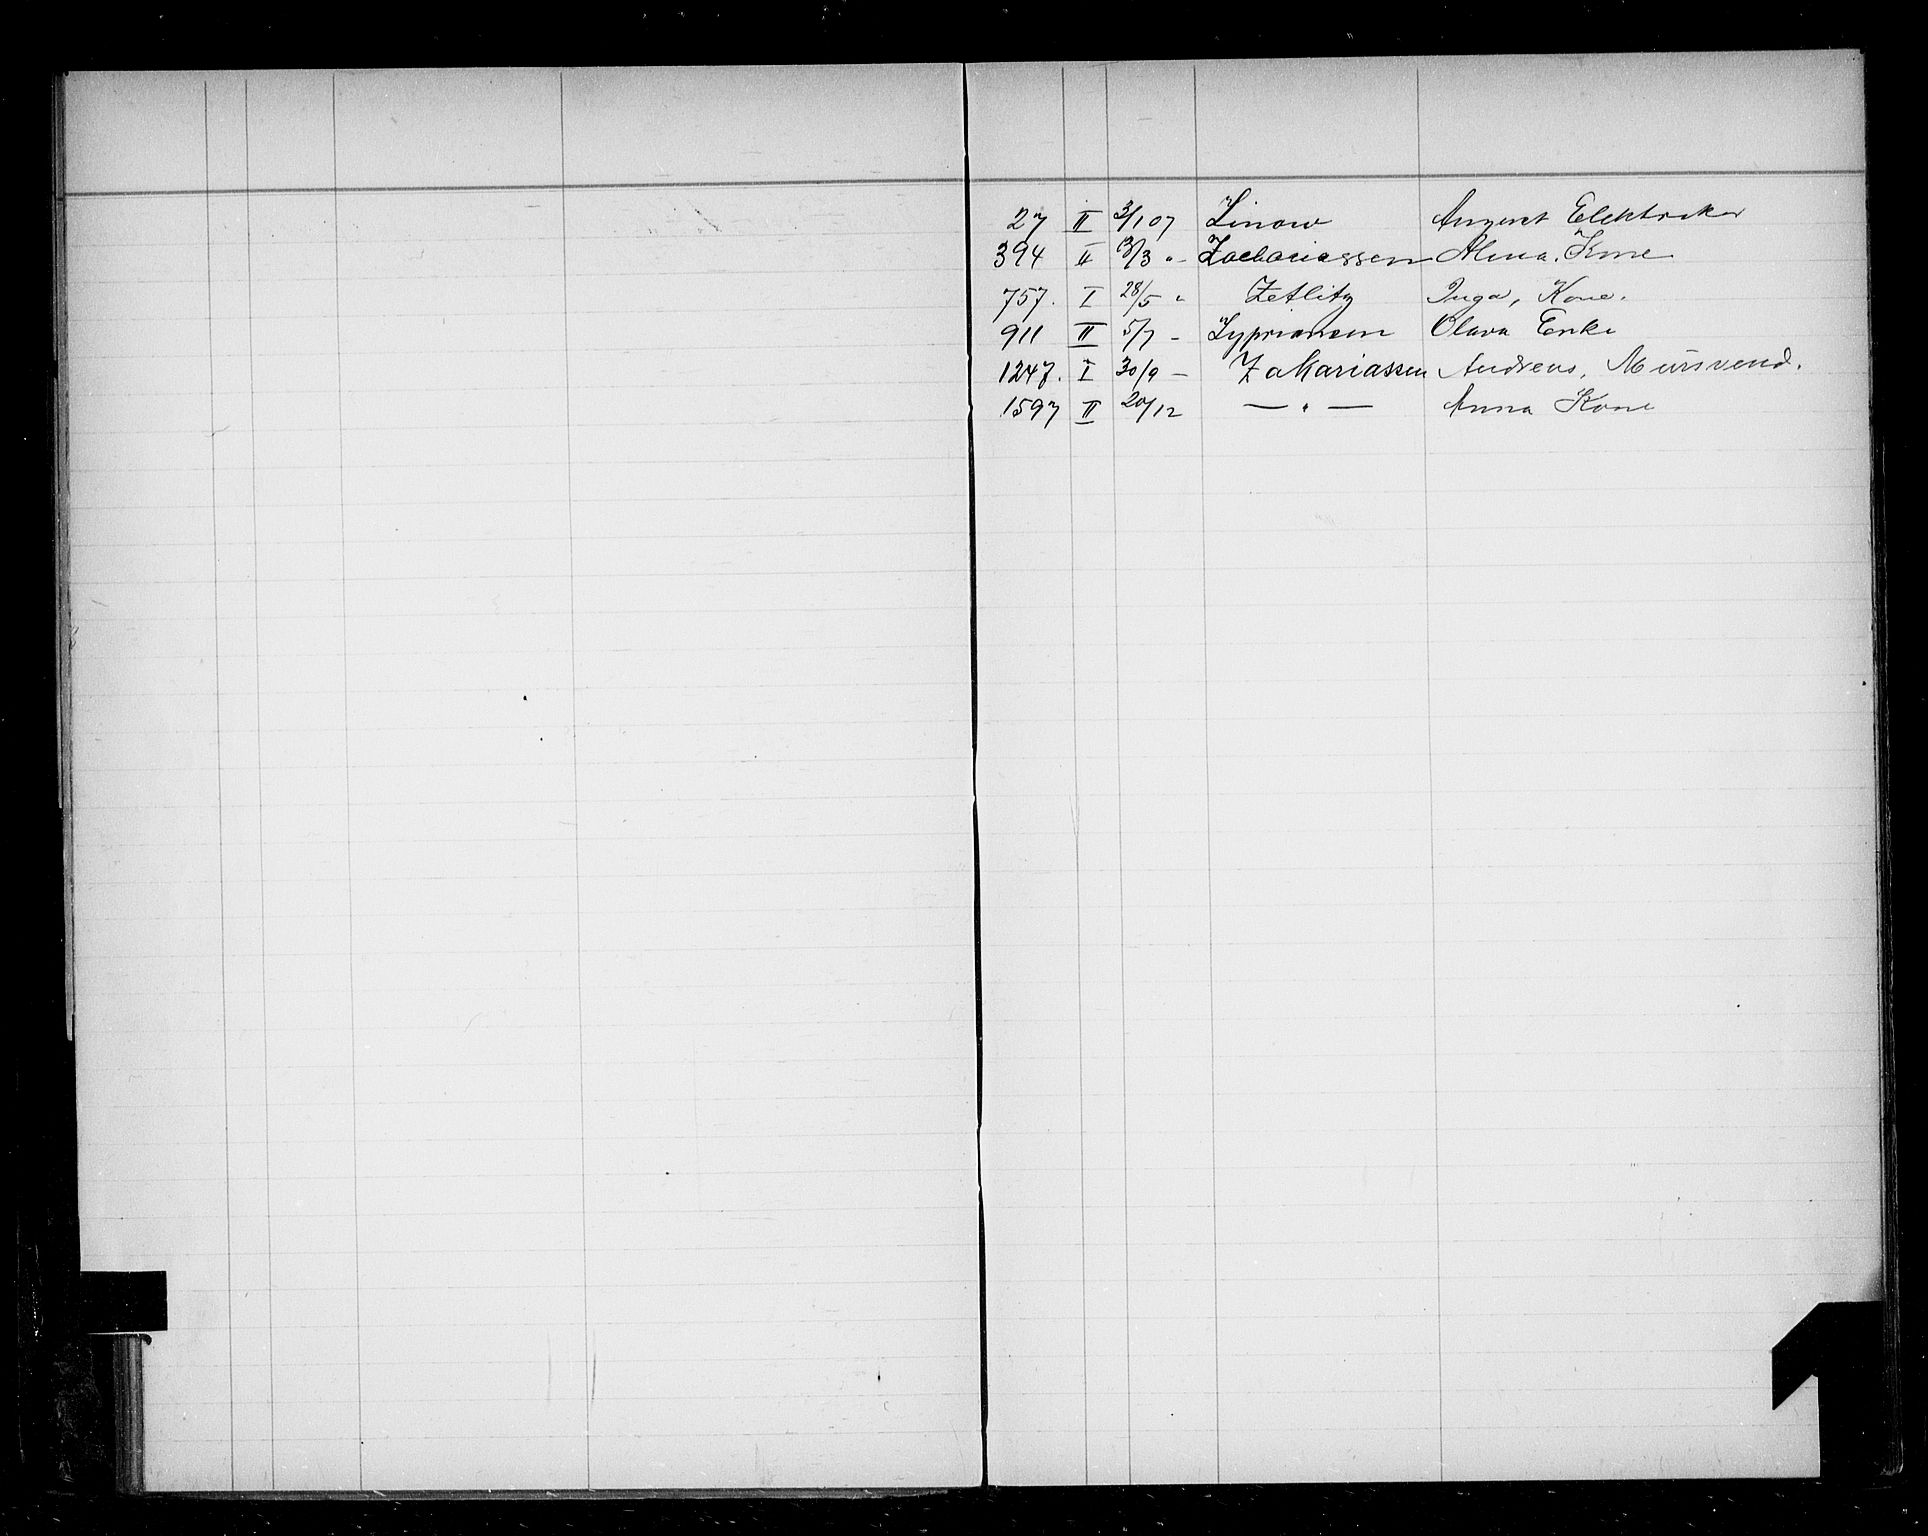 27 II 3/1 07 Zinow August Elektriker
394 II 13/3 " - Zachariassen Alma. Kone
757. I 28/5 " Zetlitz Inga, Kone.
911 II 5/7 - Zypriansen Olava Enke
1247. I 30/9 — Zakariassen Andreas, Mursvend.
1597 II 20/12 — " — Anna Kone